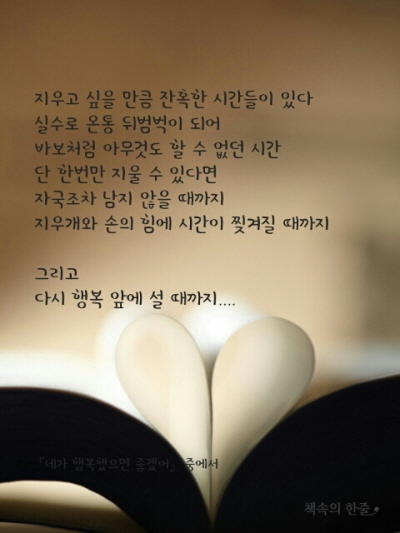 지우고 싶을 만큼 잔혹한 시간들이 있다
실수로 온통 뒤범벅이 되어
바보처럼 아무것도 할 수 없던 시간
단 한번만 지울 수 있다면
자국조차 남지 않을 때까지
지우개와 손의 힘에 시간이 찢겨질 때까지
그리고
다시 행복 앞에 설 때까지....
『네가 행복했으면 좋겠어』 중에서
책속의 한줄